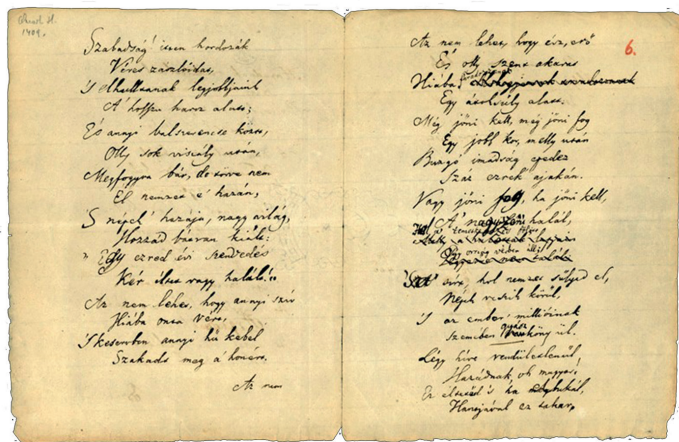 Quart. H.
1409.
Szabadság! itten hordozák
Véres zászlóidat,
'S elhulltanak legjobbjaink
A' hosszu harcz alatt;
És annyi balszerencse közt,
Olly sok viszály után,
Megfogyva bár, de törve nem
Él nemzet e' hazán,
'S népek' hazája, nagy világ,
Hozzád bátran kiált:
„Egy ezred évi szenvedés
Kér éltet vagy halált!„
Az nem lehet, hogy annyi szív
Hiába onta vért,
'S keservben annyi hű kebel
Szakadt meg a' honért.
Az nem
6.
Az nem lehet, hogy ész, erő
És olly szent akarat
Hiába
Egy átoksúly alatt.
Még jőni kell, még jőni fog
Egy jobb kor, melly után
Buzgó imádság epedez
Száz ezrek ajakán.
Vagy jőni fog, ha jőni kell,
A' nagyszerü halál,
Hol a' temetkezés fölött
Egy ország vérben áll.
'S a' sírt, hol nemzet sűlyed el,
Népek veszik körűl,
'S az ember' millióinak
Szemében gyászköny űl.
Légy híve rendületlenűl
Hazádnak, oh magyar:
Ez éltetőd 's ha elbukál,
Hantjával ez takar.